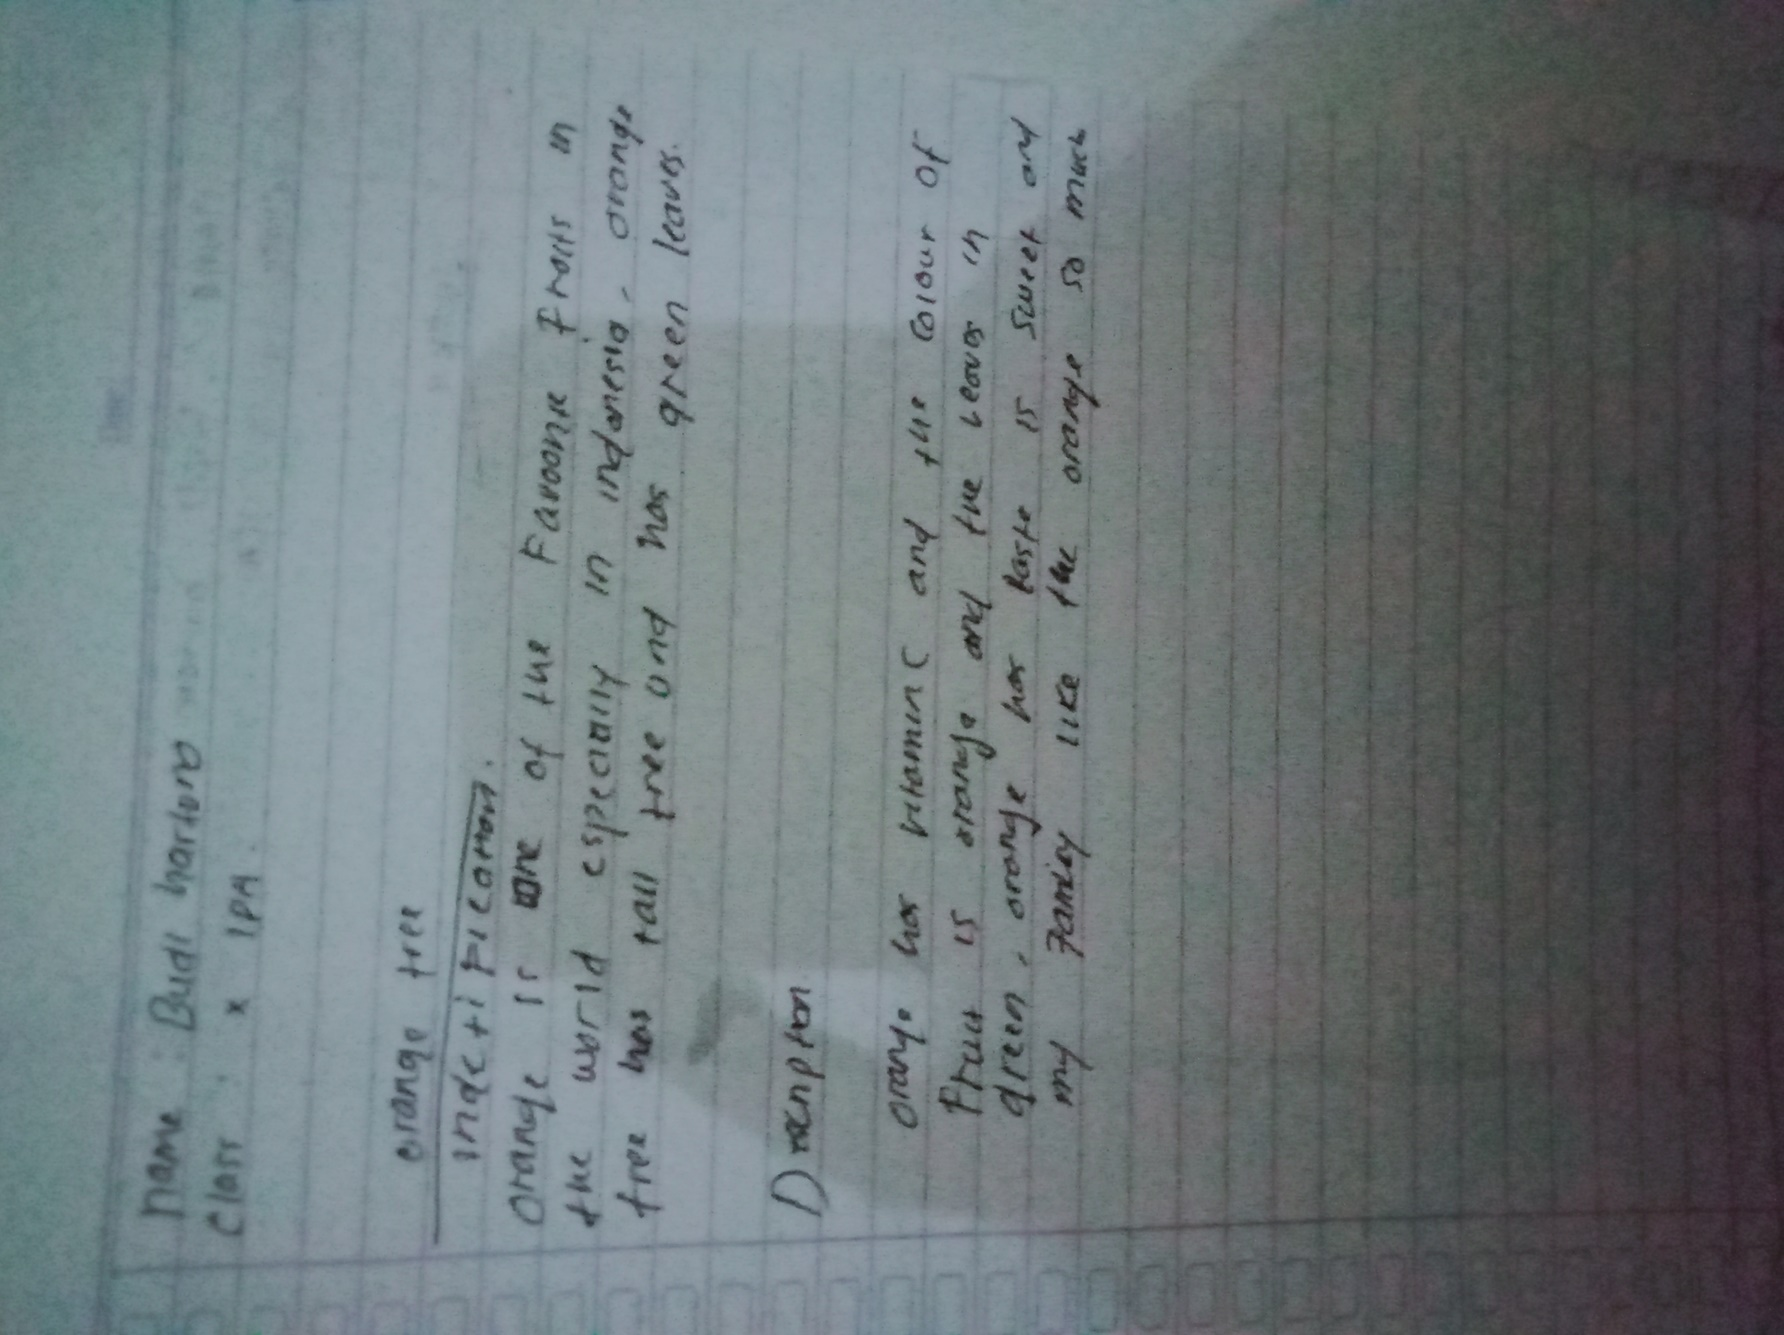 name : Budi hartono
Class : x IPA.
orange tree
indetification.
orange is one of the Favorite fruits in
the world especially in indonesia, orange
tree has tall tree and has green leaves.
Description
orange has vitamin C and the colour of
Fruit is orange and the leaves in
green, orange has taste is sweet and
my family like the orange so much